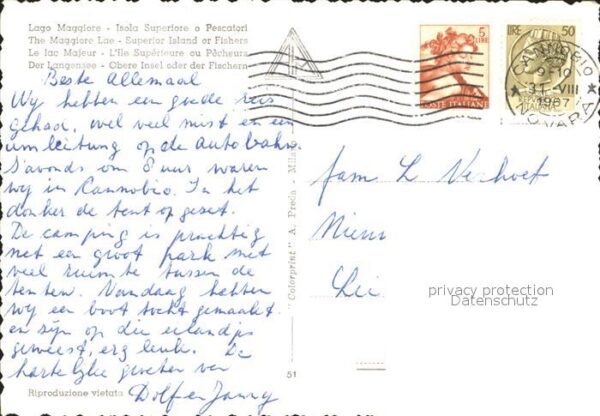 Lago Maggiore - Isola Superiore o Pescatori
The Maggiore Lac - Superior Island of Fishers
Le lac Majeur - L'Ile Supérieure ou Pêcheurs
Der Langensee - Obere Insel oder der Fischern
Beste Allemaal
Wy hebben een goede reis
gehad, wel veel mist en een
omleiding op de autobahn.
S'avonds om 8 uur waren
wy in Cannobio. In het
donker de tent op gezet.
De camping is prachtig
met een groot park met
veel ruimte tussen de
tenten. Vandaag hebben
wy een boot tocht gemaakt
en zijn op die eilandjes
geweest, erg leuk. De
hartelijke groeten van
Dolf en Janny
Riproduzione vietata
"Colorprint" A. Preda - Mila
51
5
LIRE
POSTE ITALIANE
LIRE 50
CANNOBIO
9-10
31-VIII
1967
NOVARA
fam L Verhoef
Nieuw
privacy protection
Datenschutz